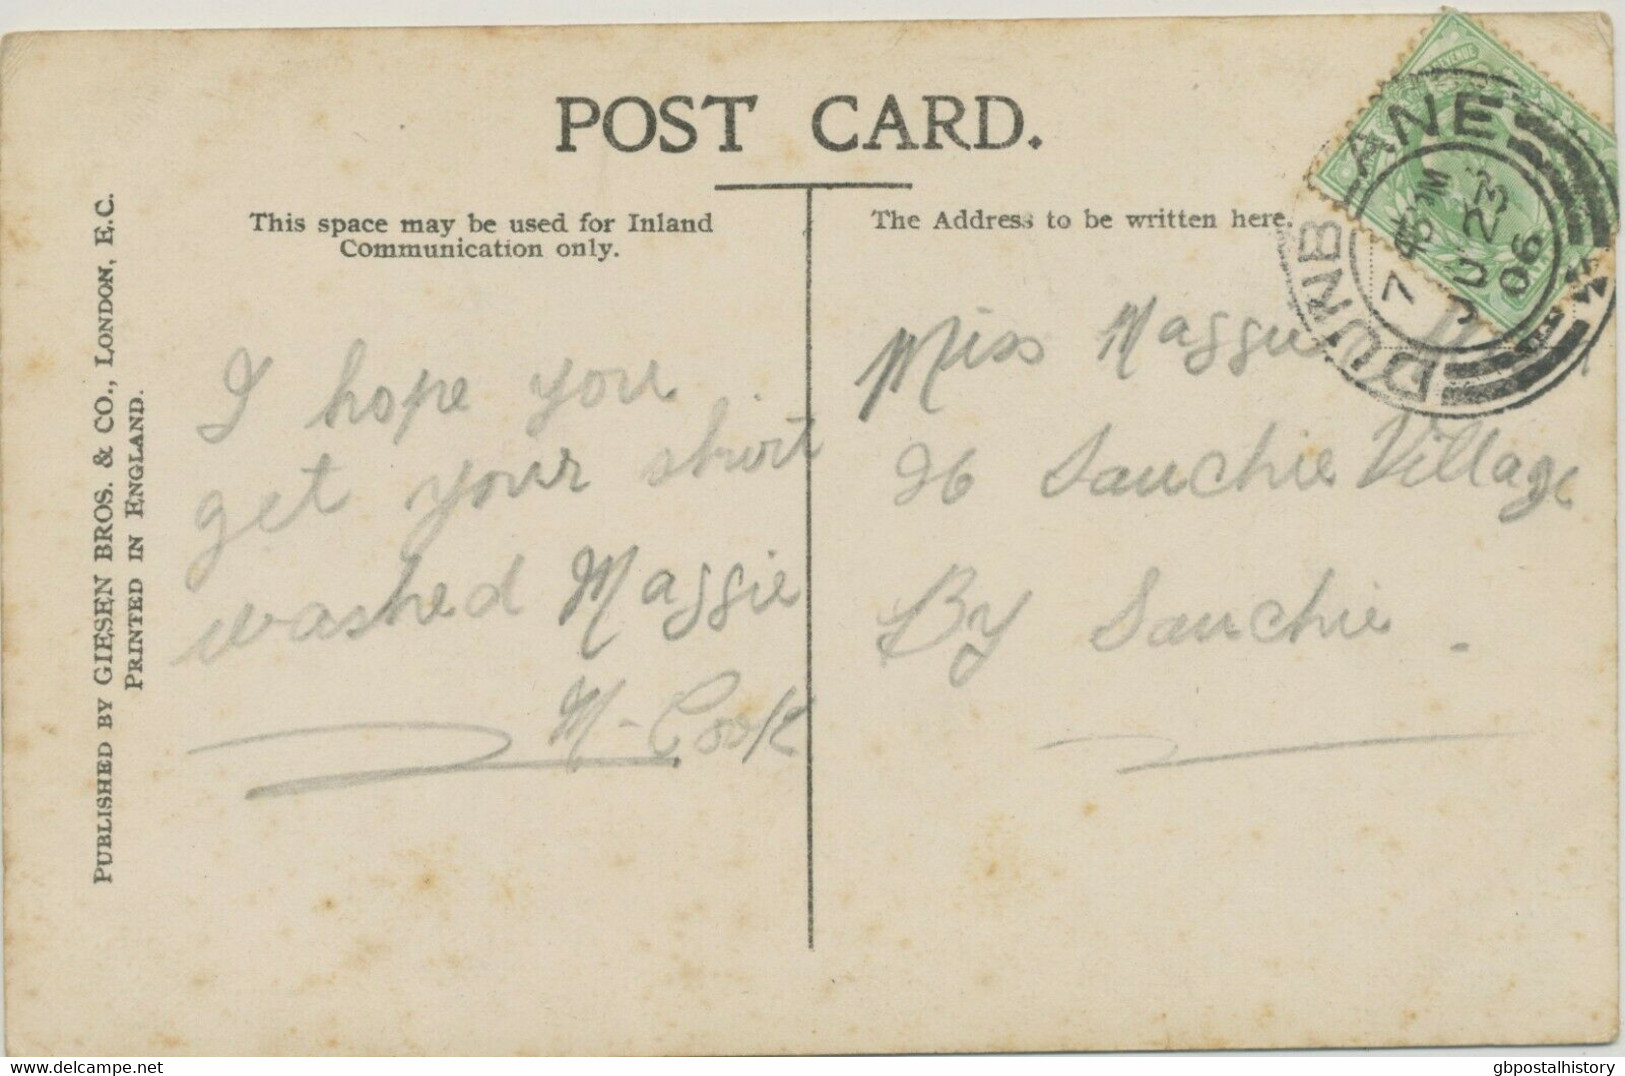 POST CARD.
This space may be used for Inland
Communication only.
The Address to be written here.
PUBLISHED BY GIESEN BROS. & CO., LONDON, E.C.
PRINTED IN ENGLAND.
DUNBLANE
7 45 PM
JU 23
06
REVENUE
I hope you
get your shirt
washed Maggie
M. Cook
Miss Maggie
26 Sauchie Village
By Sauchie.
gbpostalhistory